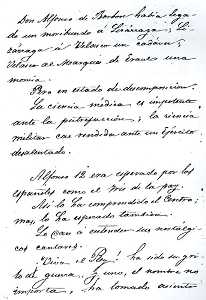 Don Alfonso de Borbon habia lega-
do un moribundo á Lizárraga; Li-
zárraga á Velasco un cadáver;
Velasco al Marqués de Erasto una
momia.
Pero en estado de descomposicion.
La ciencia médica es impotente
ante la putrefaccion; la ciencia
militar cae rendida ante un Ejército
desalentado.
Alfonso 12 era esperado por los
españoles como el iris de la paz.
Asi lo ha comprendido el Centro;
mas, lo ha esperado tambien.
Lo han á entender sus nostálgi-
cos cantares.
"Viva el Rey" ha sido su gri-
to de guerra. Y uno, el nombre no
importa, ha tomado asiento